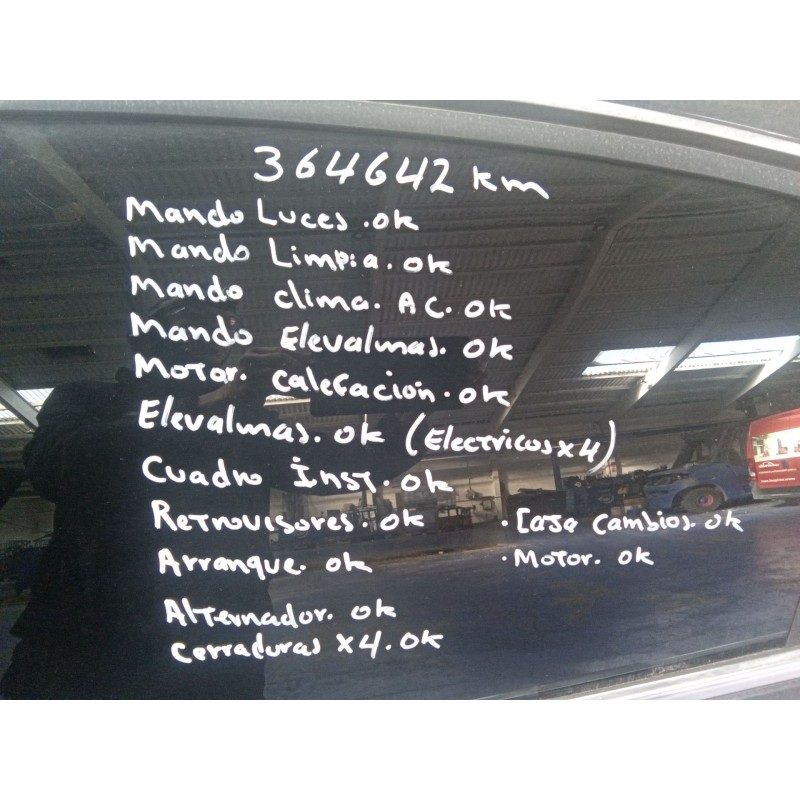 364642 km
Mando Luces. ok
Mando Limpia. ok
Mando clima. AC. ok
Mando Elevalunas. ok
Motor. calefacion. ok
Elevalunas. ok (Electricos x4)
Cuadro inst. ok
Retrovisores. ok
Arranque. ok
Alternador. ok
cerraduras x4. ok
· Caja cambios. ok
· Motor. ok